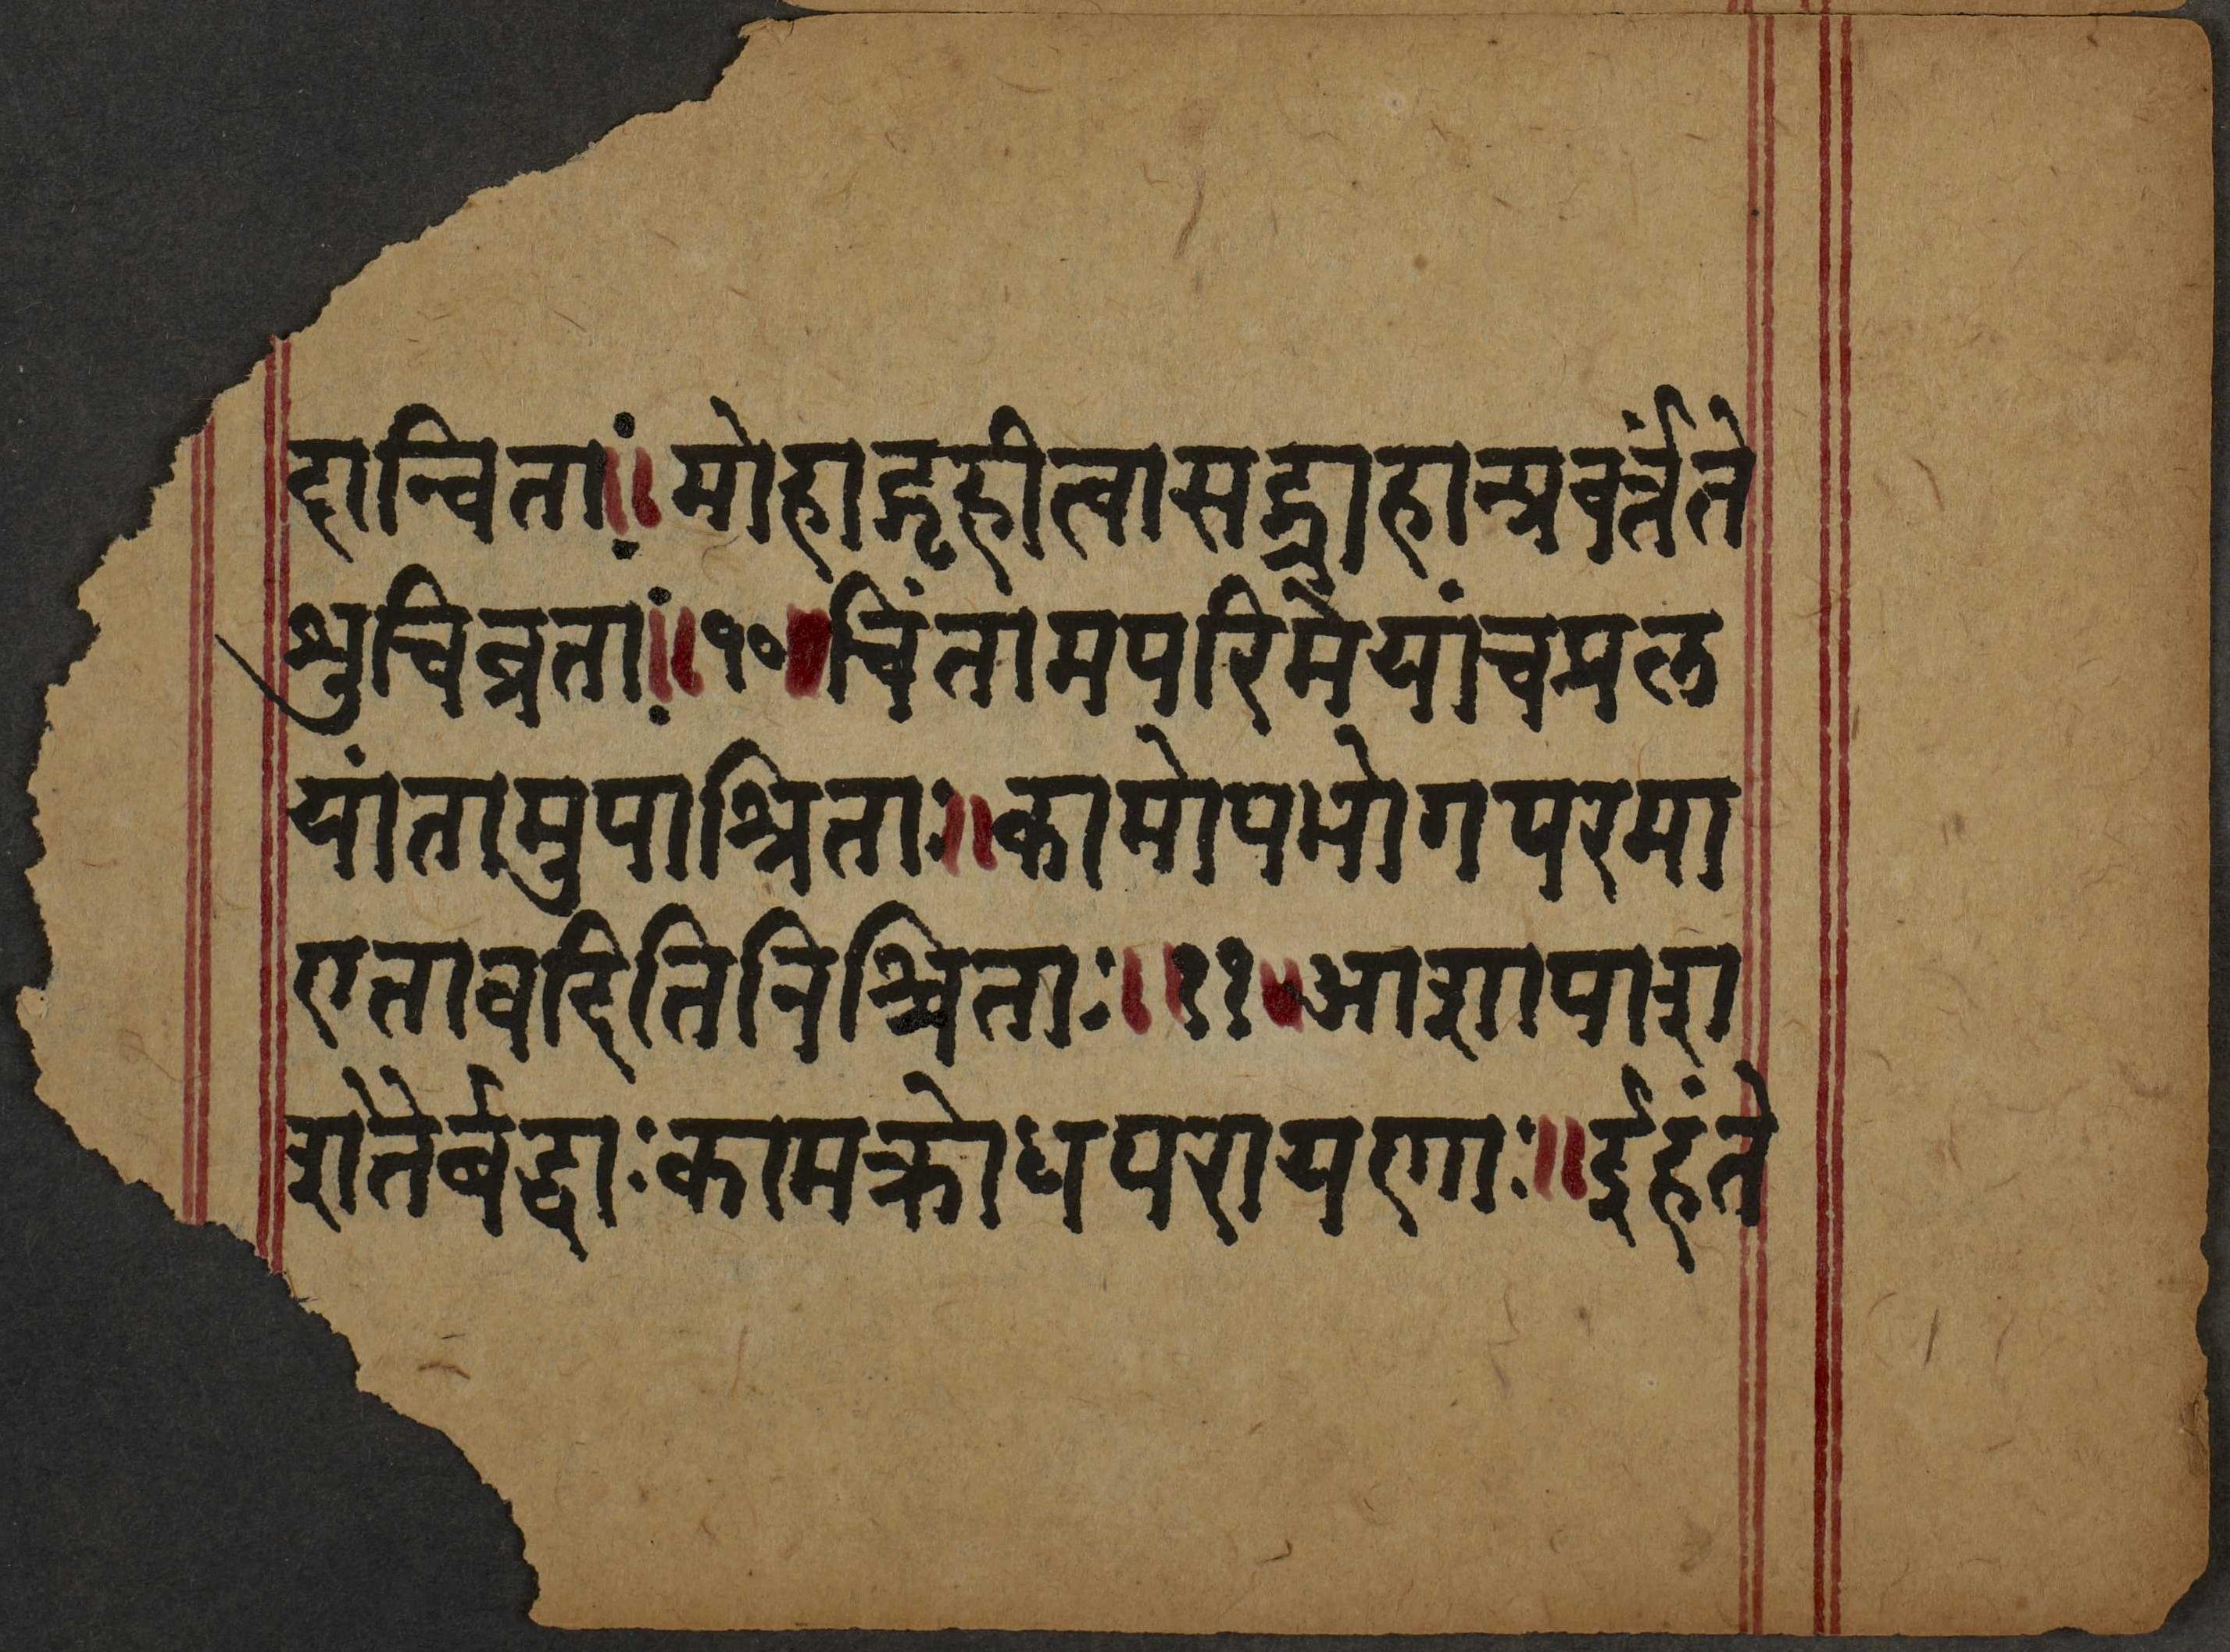 दान्विताः॥मोहाद्गृहीत्वासद्ग्राहान्प्रवर्त्तंते
शुचिव्रताः॥१०॥चिंतामपरिमेयांचप्रल
यांतामुपाश्रिताः॥कामोपभोगपरमा
एतावदितिनिश्चिताः॥११॥आशापाश
शतैर्बद्धाःकामक्रोधपरायणाः॥ईहंते